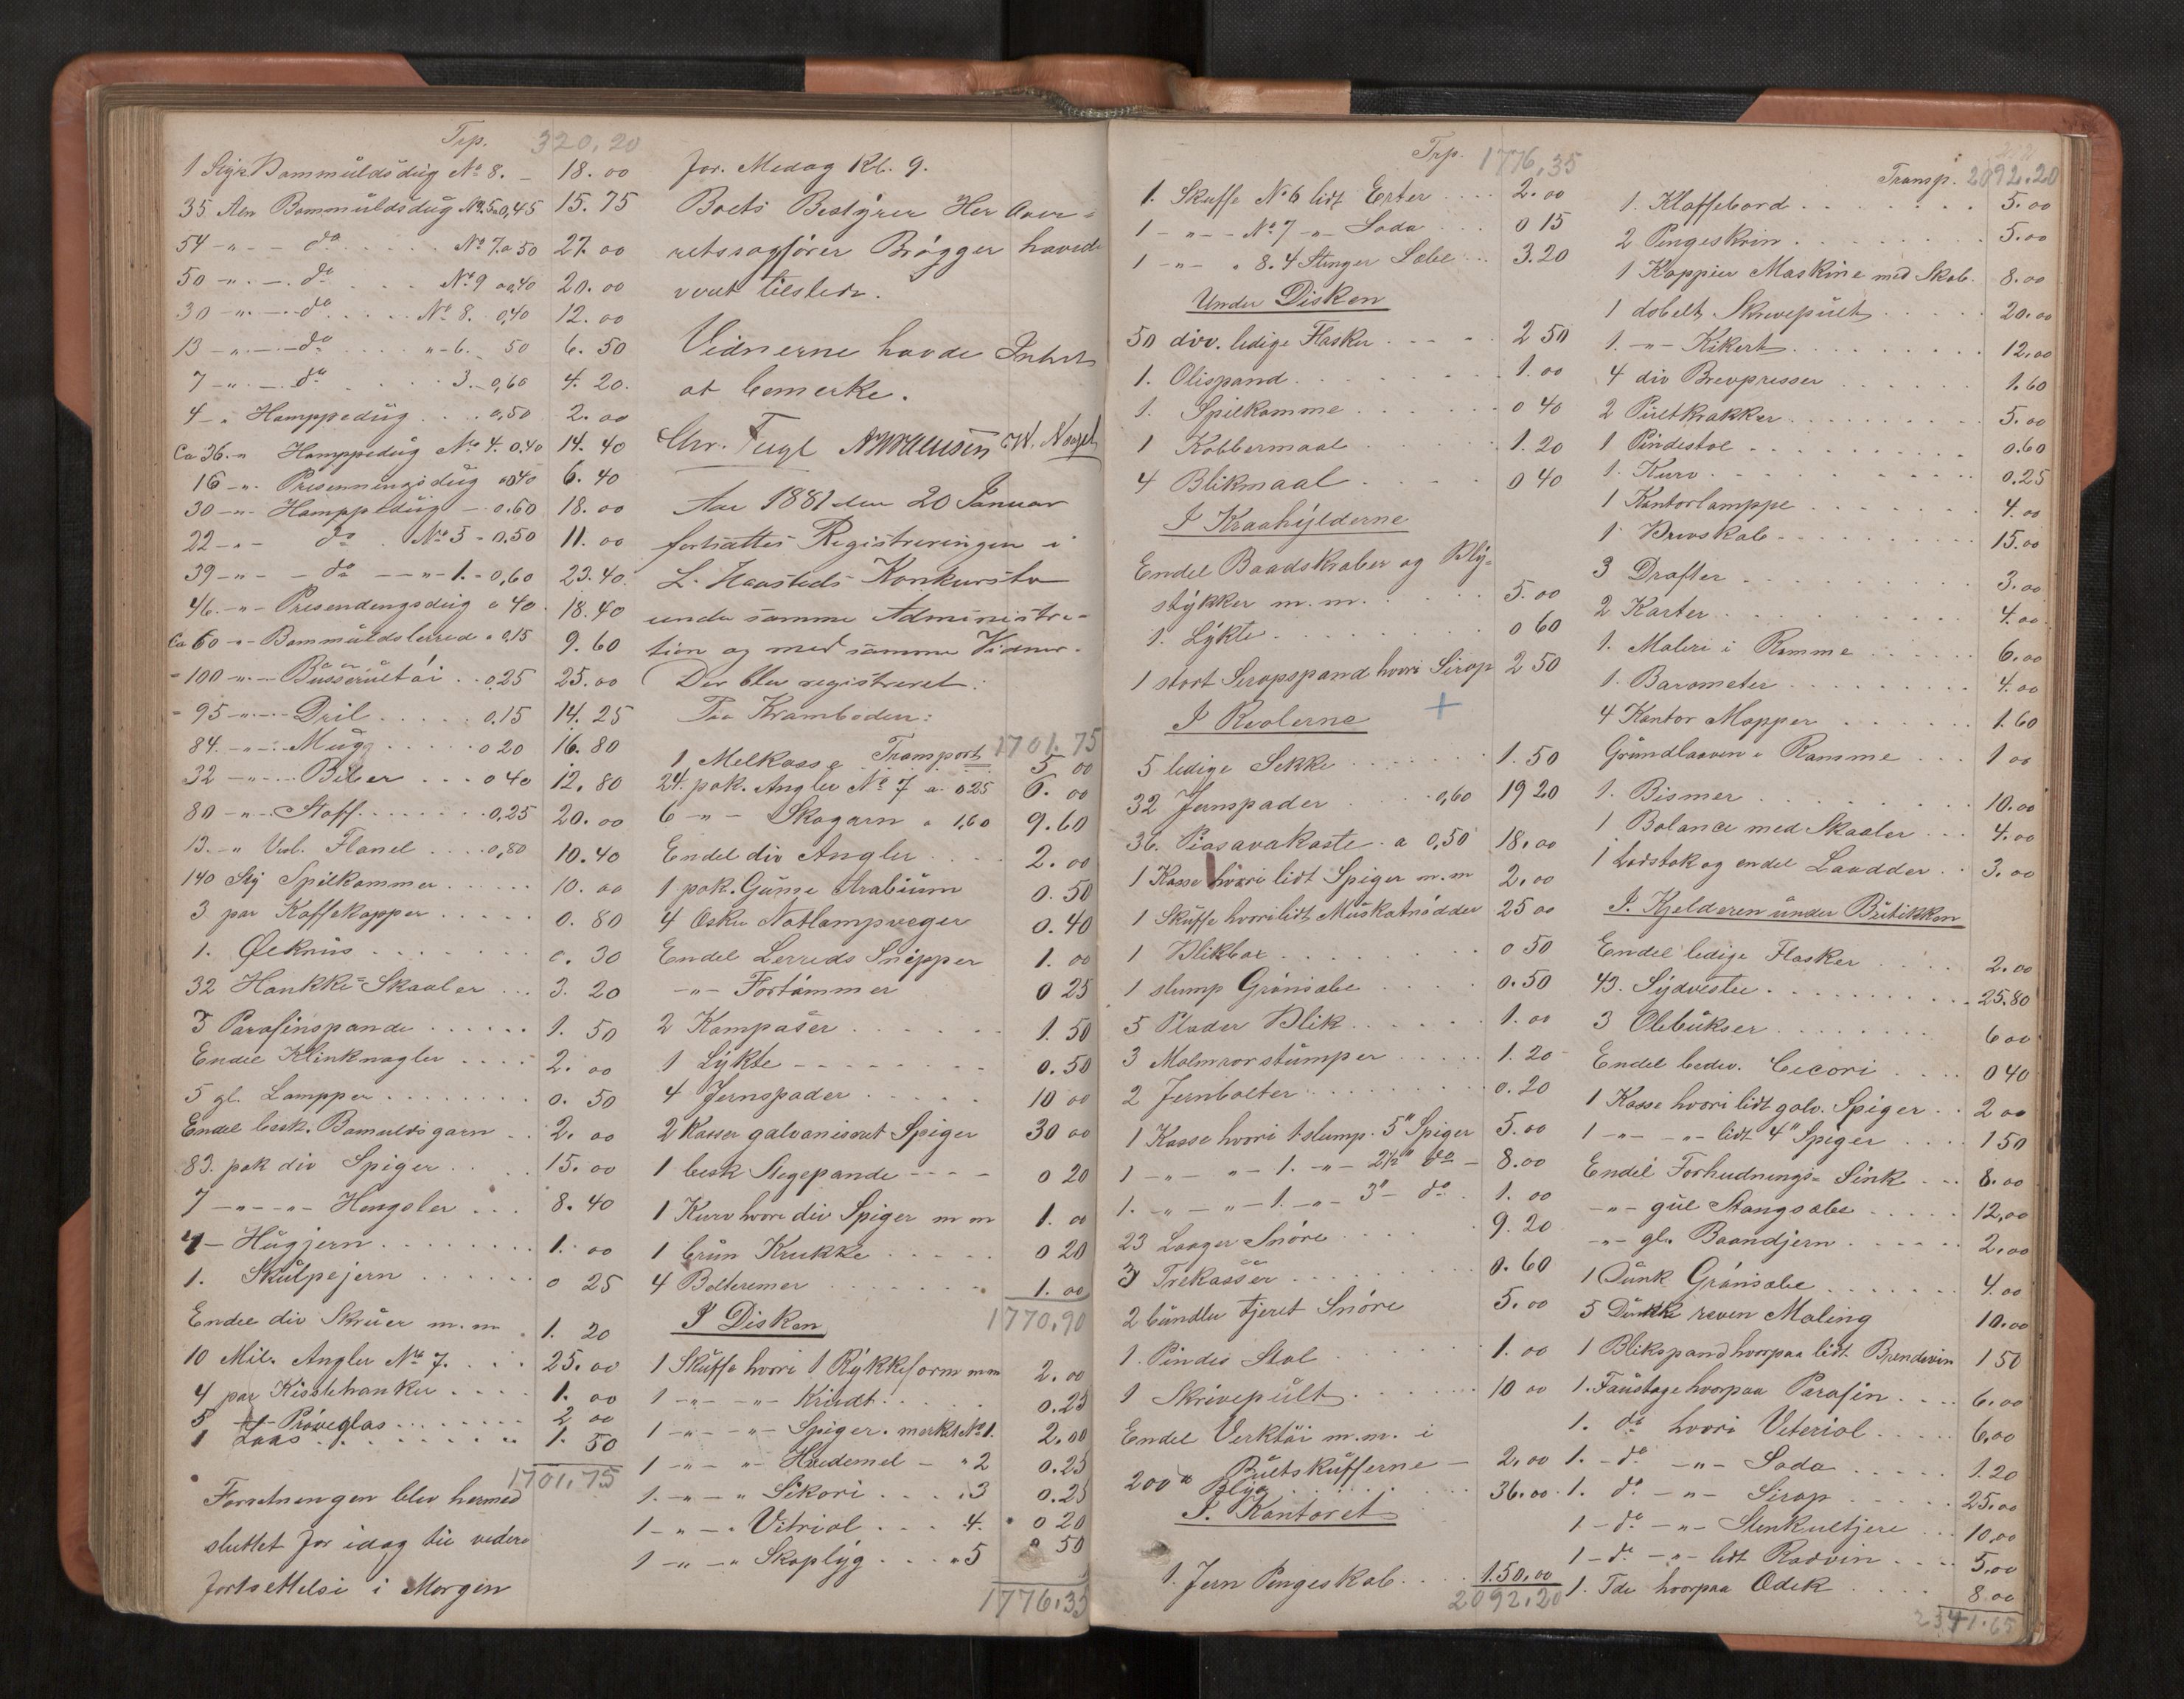 Trp. 320,20
1 Styk Bommuldsdug No 8. - 18.00
35 Alen Bommuldsdug No 5 a 0,45 15.75
54 -"- - do . . . . No 7. a 50 27.00
50 -"- - do . . . No 9 a 0,40 20.00
30 -"- - do . . . . No 8. 0,40 12.00
13 -"- - do . . . . "- 6. 50 6.50
7 -"- - do . . . . 3. - 0,60 4.20.
4 - " Hamppedug . . 0,50 2.00
Ca 36. " Hamppedug No 4. 0.40 14.40
16 -". Presenningsdug a 0 40 6.40
30 -"- Hamppedug - 0.60 18.00
22 -"- do . No 5 - 0.50 11.00
39 -"- - do - -"- 1. - 0,60 23.40.
46. -"- Presendengsdug a 40. 18.40
Ca 60 -"- Bommuldslerred a 0,15 9.60
" 100 -"- Busserultöi . . 0,25 25.00
" 95 -"- Dril . . . . . 0,15 14.25
84. -"- Mugg . . . . . 0 20 16.80
32 -"- Biber . . . 0 40 12.80
80 -"- Stoff . . . . . . . 0,25 20.00
13. -" Uol. Flanel . . . . 0,80 10.40
140 Sty Spilkommer . . . . . . 10.00
3 par Kaffekopper . . . . . 0.80
1. Ølkrus . . . . . . . 0.30
32 Hankke=Skaaler . . . 3.20
5 Parafinspande . . . . . . 1.50
Endel Klinknagler . . . . 2.00
5 gl. Lampper . . . . . . . . 0.50
Endel besk. Bomuldsgarn . . 2.00
83. pak div Spiger . . . . 15.00
7 -"- -"- Hengsler . . . 8.40
4 - Hugjern . . . . . . . . 1.00
1. Skulpejern . . . . . . 0 25
Endel div Skruer m.m . 1.20
10 Mil. Angler No 7. . . . 25.00
4 par Kistehanker . . . . 1.00
5 Pröveglas . . . . . . . . 2.00
1 Laas . . . . . . . . 1.50
1701,75
Forretningen blev hermed
sluttet for idag til videre
fortsettelse i Morgen
for. Medag Kl. 9.
Boets Bestyrer Her Over=
retssagförer Brögger havde
veret tilstede.
Vidnerne havde Intet
at bemerke.
Chr. Fugl
Aar 1881 den 20 Januar
fortsattes Registreringen i
L. Haasteds Konkursbo
under samme Administra-
tion og med samme Vidner.
Der blev registreret:
Paa Kramboden:
Transport 1701.75
1 Melkasse . . . . . 5 00
24. pak. Angler No 7 a 0 25 6.00
6 -"- Skogarn a 1,60 9.60
Endel div Angler . . . . 2.00
1 pak. Gume Arabium 0.50
4 Esker Natlampveger 0.40
Endel Lerreds Snipper 1.00
-"- Fortömmer 0 25
2 Kompaser . . . . . . 1.50
1 Lykte - - - - - - - - 0.50
4 Jernspader . . . . . 10 00
2 Kasser galvaniseret Spiger 30 00
1 besk Stegepande - - - 0 20
1 Kurv hvori div Spiger m m 1.00
1 brun Krukke . . . . . 0 20
4 Bolteremer . . . . . . 1.00
1770,90
I Disken
1 Skuffe hvori 1 Rykkeform mm 2.00
1 -"- -"- Kridt . . . . 0.25
1 -"- -"- Spiger. merket No 1. 2.00
1 -"- -"- Hvedemel - " 2 0.25
1. -"- " Sikori . . . . . 3 0.25
1 -"- . Vitriol . . . 4. 0 20
1 -"- -"- Skoplyg . . . " 5 0 50
1776.35
Trp. 1776,35
1. Skuffe No 6 lidt Erter . . . . 2.00
1 -"- - No 7 -"- Soda . . . . 0 15
1 -"- " 8. 4 Stenger Sebe . . . 3.20
Under Disken
50 div. ledige Flasker . . - - . 2 50
1. Olispand . . . . . . . . . 1.00
1. Spilkomme . . . . . . . 0 40
1 Kobbermaal . . . . . 1.20
4 Blikmaal . . . . . . 0 40
I Kraahylderne
Endel Baadskraber og Bly=
stykker m.m. . . . . 5.00
1. Lykte . . . . . . . . . 0 60
1 stort Siropspand hvori Sirop 2 50
I Reolerne
5 ledige Sekke . . . . . . 1.50
32 Jernspader . . . . 0,60 19 20
36. Piasavakoste . a 0,50 18.00
1 Kasse hvori lidt Spiger m.m 2.00
1 Skuffe hvori lidt Muskatnödder 25 00
1 Blikbox . . . . . . . . 0 50
1 slump Grönsebe . . . . 0.50
5 Plader Blik . . . . . . 1.00
3 Malmrorstumper . . . . . 1.20
2 Jernbolter . . . . . . . . 0.20
1 Kasse hvori 1 slump. 5" Spiger 5.00
1 -"- -"- 1. -"- 2½" do - 8.00
1. -"- -"- 1. -"- 3" - do . 1.00
23 Laager Snöre . . . . . 9.20
3 Trekasser . . . . . . . . 0.60
2 bundter tjeret Snöre 5.00
1. Pindes Stol . . . . . 1.00
1 Skrivepult . . . . . . . 10 00
Endel Verktöi m.m. i
Pultskufferne - 2,00
200 " Blyg . . . . . . . . . 36.00.
I. Kontoret
1. Jern Pengeskab . . . . 150,00
2092,20
Transp. 2092.20
1. Klaffebord . . . . . . . . 5.00
2 Pengeskrin . . . . . . . 5.00
1 Koppier Maskine med Skab. 8.00
1 dobelt Skrivepult . . . . . 20.00
1. -"- Kikert . . . . . . . . . 12,00
4 div Brevpresser . . . . . . 1.60
2 Pultkrakker . . . . . . . . 5.00
1 Pindestol . . . . . . . . . . 0.60
1. Kurv . . . . . . . . . . . 0.25
1 Kontorlamppe . . . . . . . 4.00
1 Brevskab . . . . . . . . . 15.00
3 Drafter . . . . . . . . . . 3.00
2 Karter . . . . . . . . . . 4.00
1. Maleri i Ramme . . . . . 6.00
1. Barometer . . . . . . . . . 4.00
4 Kontor Mapper . . . . . . 1.60
Grundloven i Ramme . . . 1 00
1. Bismer . . . . . . . . . 10.00
1 Balance med Skaaler . . . 4.00
1 Lodstok og endel Laadder . . 3.00
I. Kjelderen under Butikken
Endel ledige Flasker . . . . 2.00
43. Sydvester . . . . . . . . . . 25.80
3 Olebukser . . . . . . . . 6 00
Endel bedv. Cecori . . . . 0 40
1 Kasse hvori lidt galv. Spiger . . 2 00
1 -"- -"- lidt 4" Spiger . . . . 1 50
Endel Forhudnings=Sink . . . 8.00
-"- gul Stangsebe . . . . . 12,00
-"- gl. Baandjern . . . . . 2.00
1 Dunk Grönsebe . . . . . . . 4.00
5 Dunke reven Maling 10.00
1 Blikspand hvorpaa lidt Brendevin 1 50
1. Faustage hvorpaa Parafin . . . . 6.00
1. do hvori Veteriol . . . . . 6,00
1. - do -"- Soda . . . . . 1.20
1. do -"- Sirop . . . . . 25.00
1 - do -"- Stenkultjere . . . 10,00
1 - do -"- lidt Rødvin . . . . 5.00
1. Tde hvorpaa Edik . . . . . 8.00
2341.65